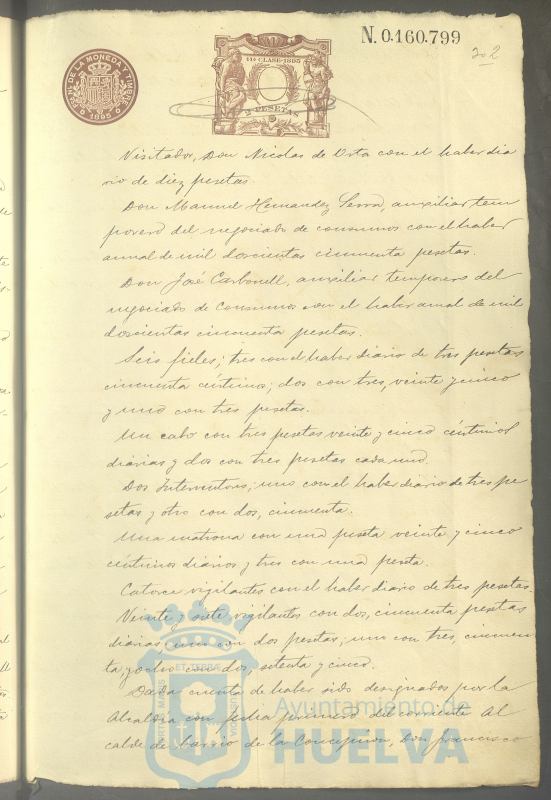 N. 0.160.799
202
NAL DE LA MONEDA Y TIMBRE
1895
11ª CLASE-1895
2 PESETAS
Visitador, Don Nicolas de Orta con el haber dia
rio de diez pesetas.
Don Manuel Hernandez Serra, auxiliar tem
porero del negociado de consumos con el haber
annal de mil doscientas cincuenta pesetas.
Don José Carbonell, auxiliar temporero del
negociado de consumos con el haber anual de mil
doscientas cincuenta pesetas.
Seis fieles; tres con el haber diario de tres pesetas
cincuenta céntimos; dos con tres, veinte y cinco
y uno con tres pesetas.
Un cabo con tres pesetas veinte y cinco céntimos
diarias y dos con tres pesetas cada uno.
Dos Interventores; uno con el haber diario de tres pe
setas y otro con dos, cincuenta.
Una matrona con una peseta veinte y cinco
céntimos diarios y tres con una peseta.
Catorce vigilantes con el haber diario de tres pesetas.
Veinte y siete vigilantes con dos, cincuenta pesetas
diarias; uno con dos pesetas; uno con tres, cincuen
ta; y ocho con dos, setenta y cinco.
Dada cuenta de haber sido designados por la
Alcaldia con fecha primero del corriente Al
calde de barrio de la Concepcion, Don Francisco
Ayuntamiento de
HUELVA
PORTUS MARIS
ET TERRÆ